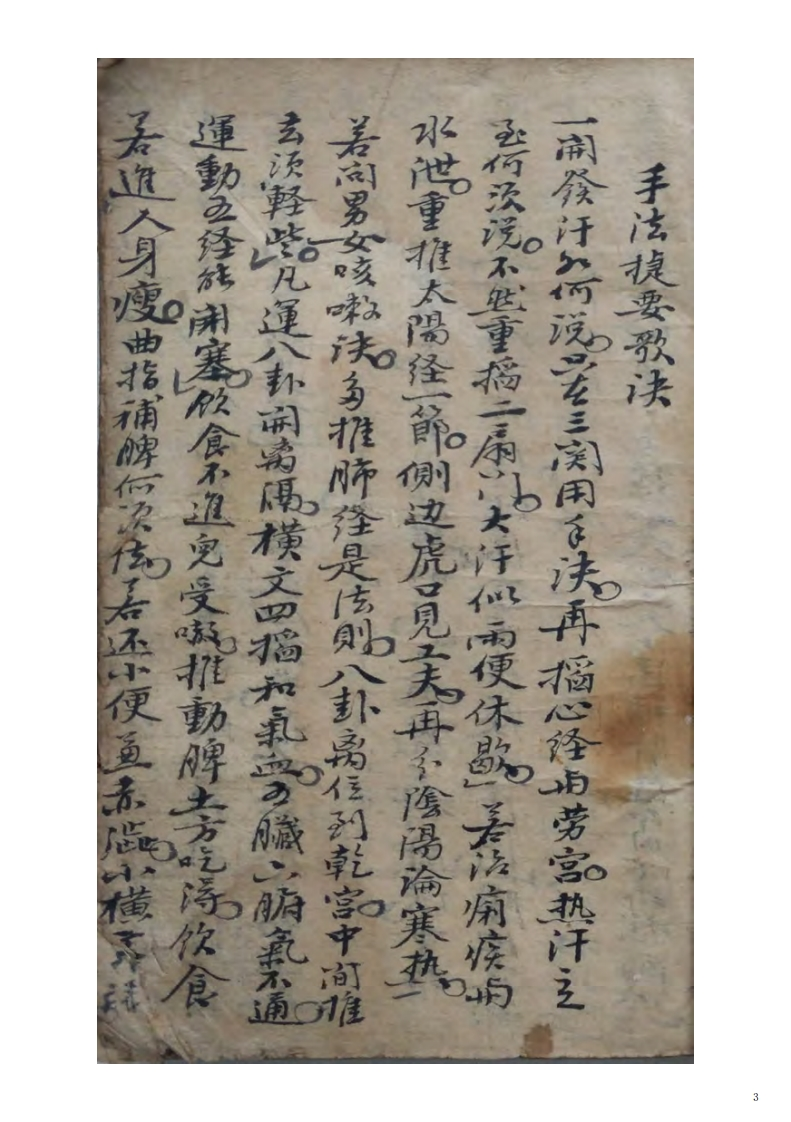 手法捷要歌訣
一開發汗如何説。只在三関用手决。再掐心経与劳宫。热汗立
至何须说。不然重掐二扇门。大汗似雨便休歇」若治痢疾与
水泄。重推太陽経一節。側边虎口見工夫。再分陰陽論寒热。一
若问男女咳嗽诀。多推肺经是法則。八卦离位到乾宫。中间推
去须輕些。凡運八卦開离隔。横文四掐和氣血。五臓六腑氣不通。
運動五经能開塞。飲食不進兒受嗽。推動脾土方吃得。饮食
若進人身瘦。曲指補脾何须法。若还小便兼赤澁。小横
3